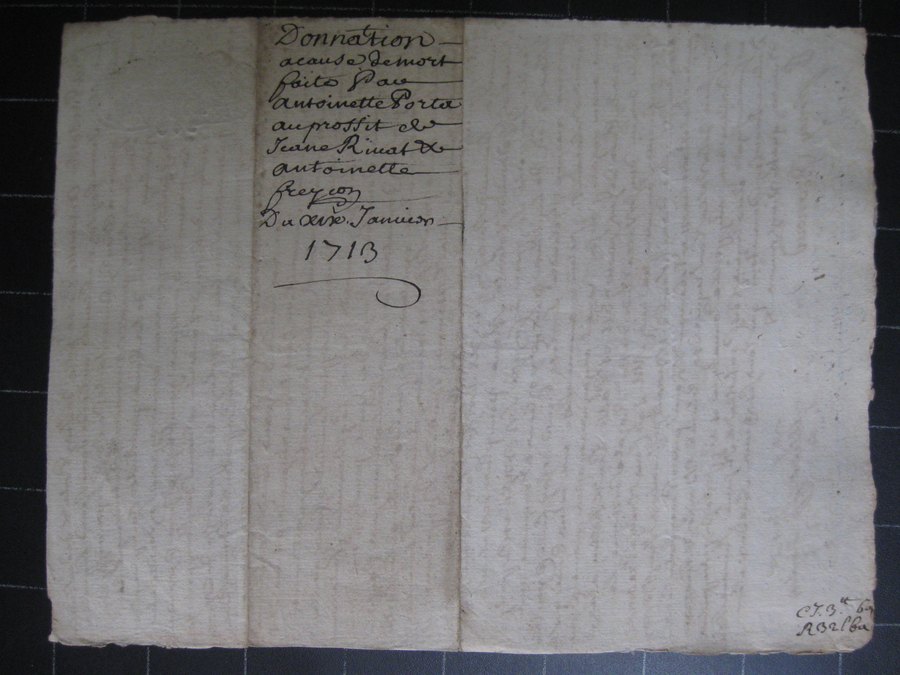 Donnation
acause demort
faite Par
antoinette Porta
au proffit de
Jeane Rivat &
antoinette
freycon
Du xix.e Janvier
1713